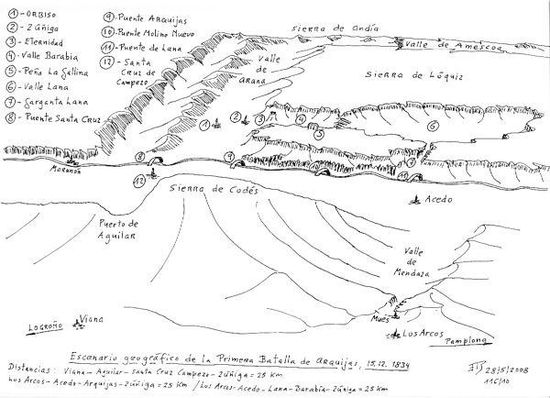 ① - ORBISO
② - Zúñiga
③ - Eternidad
④ - Valle Barabia
⑤ - Peña La Gallina
⑥ - Valle Lana
⑦ - Garganta Lana
⑧ - Puente Santa Cruz
⑨ - Puente Arquijas
⑩ - Puente Molino Nuevo
⑪ - Puente de Lana
⑫ - Santa
Cruz de
Campezo
Sierra de Andía
Valle de Amescoa
Valle
de
Arana
Sierra de Lóquiz
①
②
③
④
⑤
⑥
⑦
⑧
⑨
⑩
⑪
⑫
Marañón
Sierra de Codés
Acedo
Puerto de
Aguilar
Valle
de
Mendaza
Mues
Logroño
Viana
Los Arcos
Pamplona
Escenario geográfico de la Primera Batalla de Arquijas, 15.12.1834
Distancias: Viana - Aguilar - Santa Cruz Campezo - Zúñiga = 25 Km
Los Arcos - Acedo - Arquijas - Zúñiga = 25 Km / Los Arcos - Acedo - Lana - Barabia - Zúñiga = 25 Km
28/5/2008
116/10